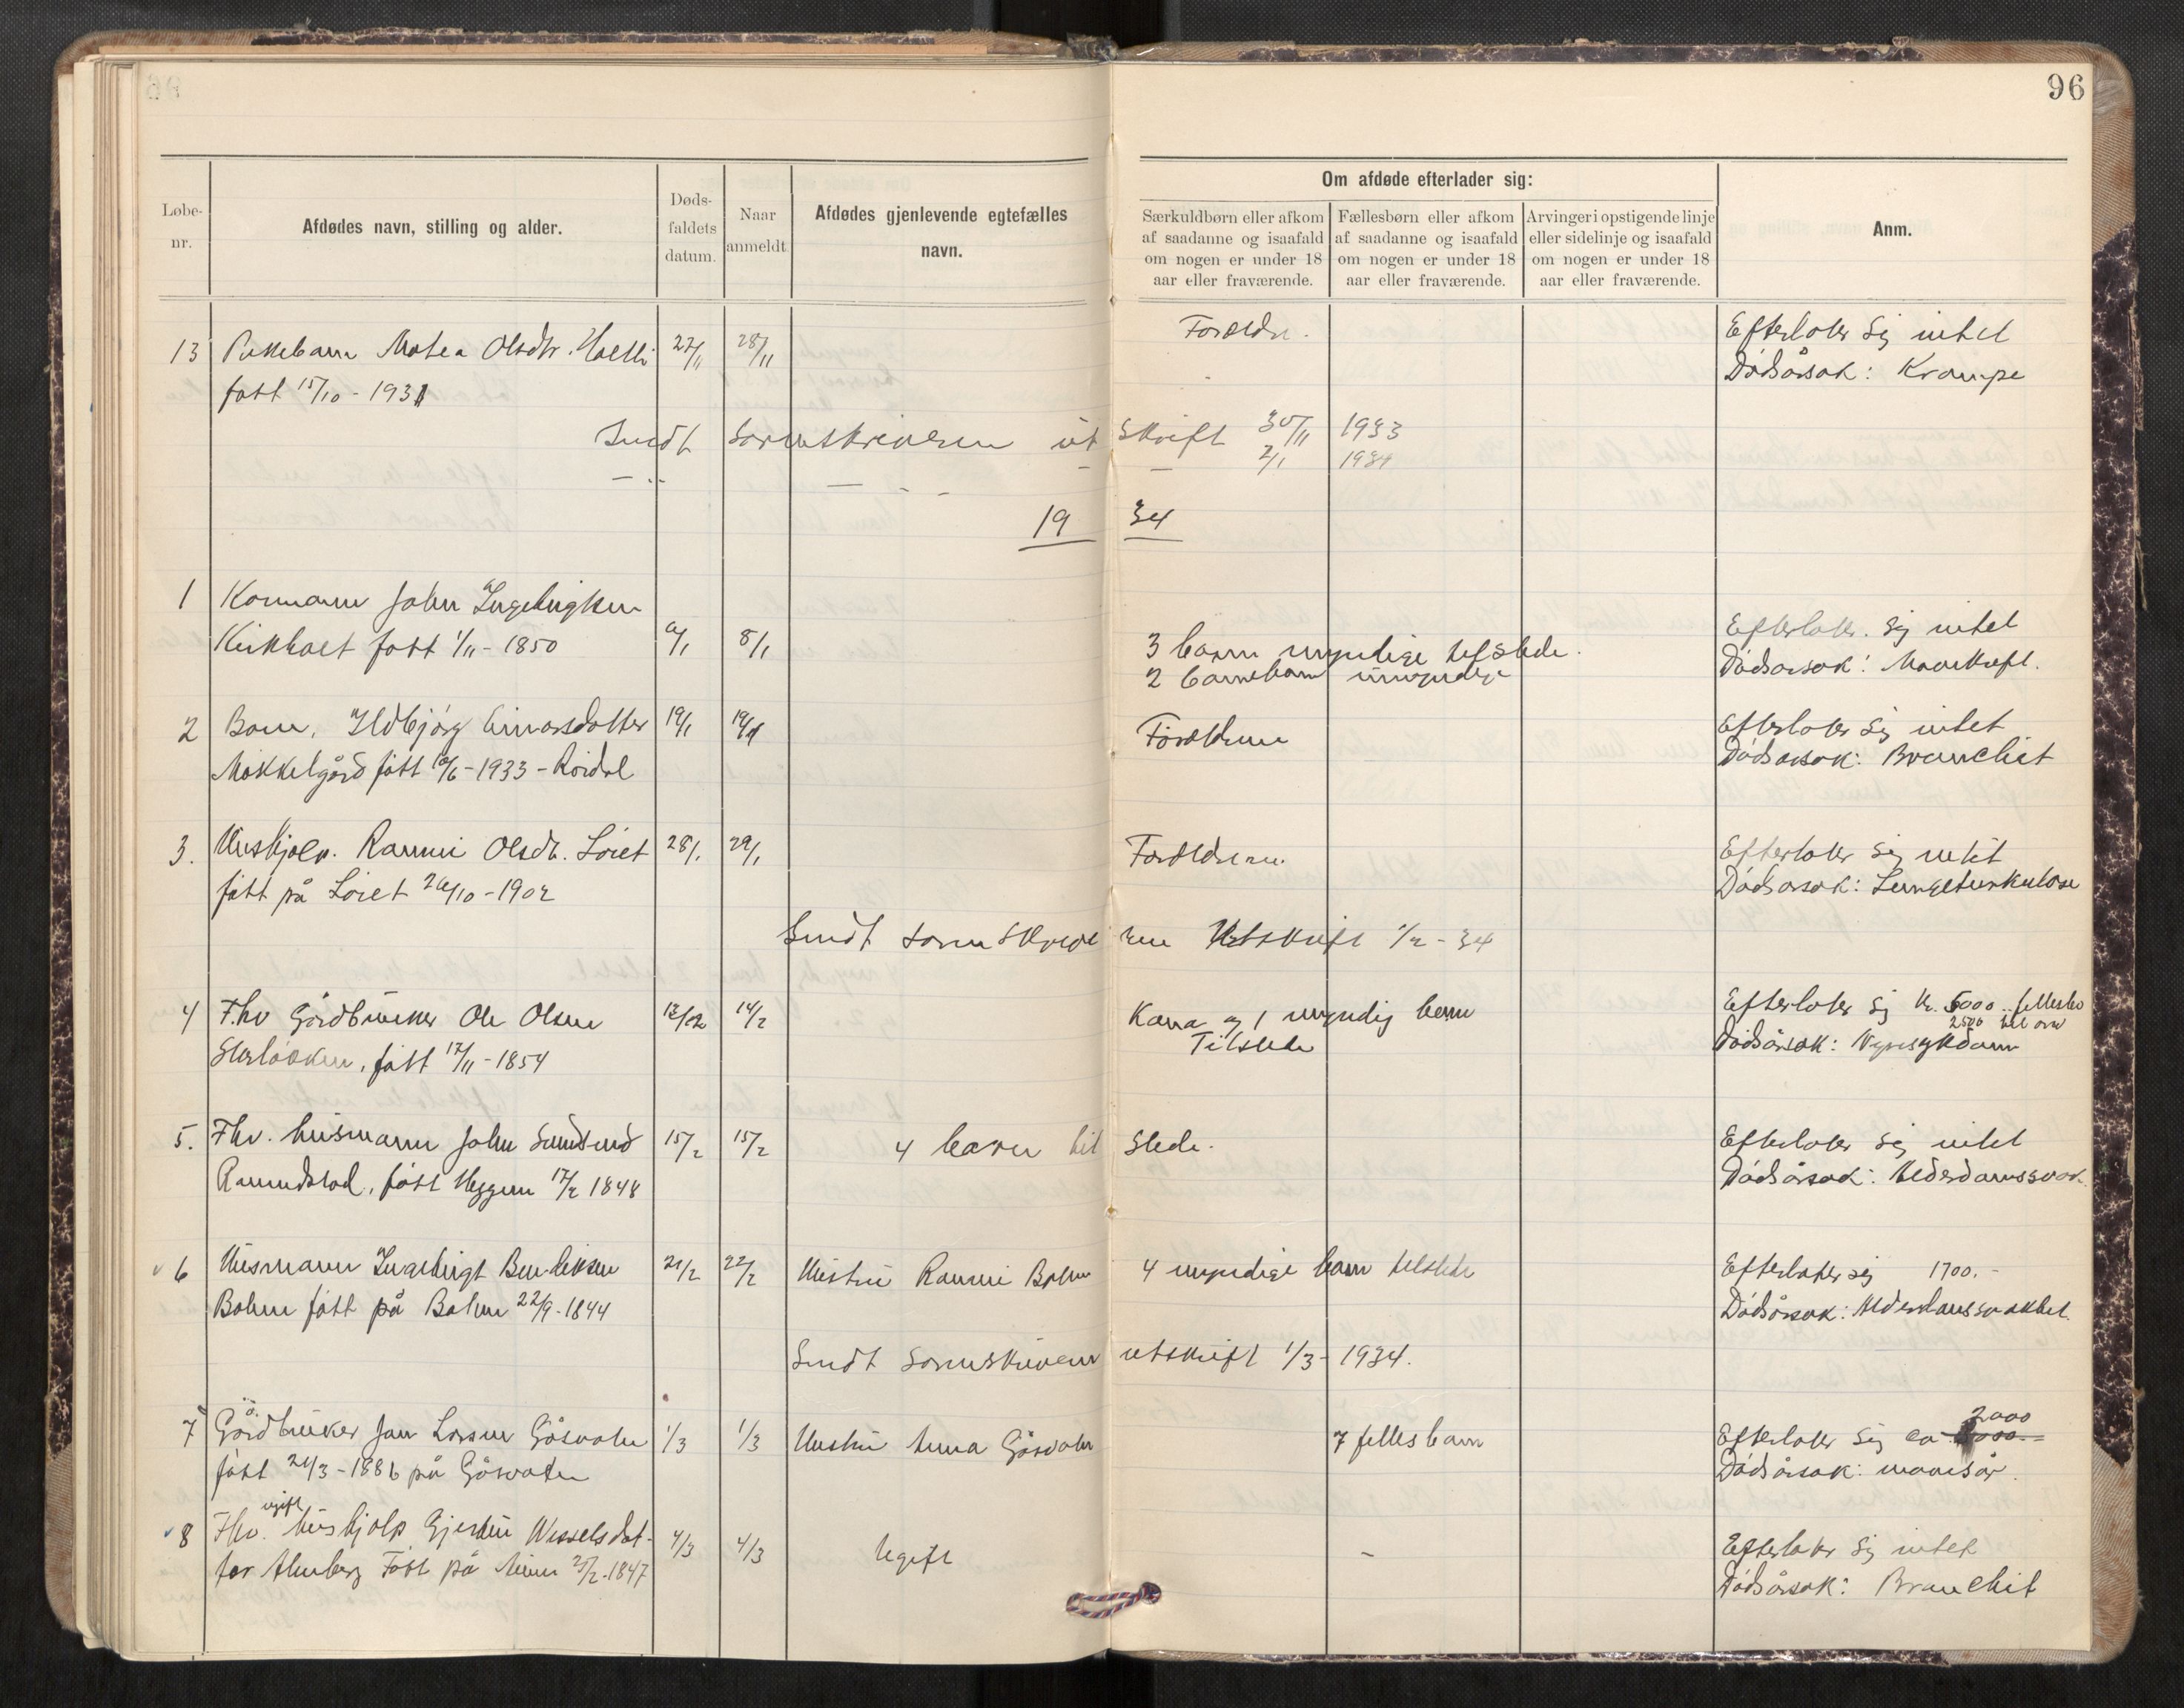 96
Om afdøde efterlader sig:
Løbe-
nr.
Afdødes navn, stilling og alder.
Døds-
faldets
datum.
Naar
anmeldt
Afdødes gjenlevende egtefælles
navn.
Særkuldbørn eller afkom
af saadanne og isaafald
om nogen er under 18
aar eller fraværende.
Fællesbørn eller afkom
af saadanne og isaafald
om nogen er under 18
aar eller fraværende.
Arvinger i opstigende linje
eller sidelinje og isaafald
om nogen er under 18
aar eller fraværende.
Anm.
13 Pikebarn Matea Olsdtr. 27/11 28/11 Foreldr. Efterlater sig intet
født 15/10 - 1931 Dødsårsak: Krampe
Sendt sorenskriveren utskrift 30/11 1933
2/1 1934
1934
1 Kaarmann John Ingebrigtsen Efterlater sig intet
født 1/11 - 1850 6/1 8/1 3 barn myndige tilstede. Dødsårsak: Mavekreft.
2 barnebarn umyndige
2 Barn, Ildbjørg Einarsdatter 19/1 19/1 Foreldrene Efterlater sig intet
Mokkelgård født 10/6 - 1933 - Dødsårsak: Bronchit
3. Hushjelp. Ranni Olsdtr. Løiet 28/1 29/1 Foreldrene. Efterlater sig intet
født på Løiet 26/10 - 1902 Dødsårsak: Lungetuberkulose
Sendt sorenskriveren Utskrift 1/2 - 34
4 F.hv Gårdbruker Ole Olsen 13/2 14/2 Kona og 1 myndig barn Efterlater sig kr. 5000 fellesbo
2500 til arv
født 17/11 - 1854 Tilstede Dødsårsak: Nyresykdom
5. Fhv. husmann John 15/2 15/2 4 barn tilstede. Efterlater sig intet
født Heggem 17/2 1848 Dødsårsak: Alderdomssvak.
6 Husmann Ingebrigt Bendiksen 21/2 22/2 Hustru Ranni Bolme 4 myndige barn tilstede Efterlater sig 1700.-
Bolme født på Bolme 22/9 - 1844 Dødsårsak: Alderdomssvakhet.
Sendt Sorenskriveren utskrift 1/3 - 1934.
7 Gårdbruker Jon Larsen Gåsvatn 1/3 1/3 Hustru Anna Gåsvatn 7 felles barn Efterlater sig ca 2000
født 24/3 - 1886 på Gåsvatn Dødsårsak: mavesår.
8 Fhv. ugift hushjelp Gjertru Wesselsdat- 4/3 4/3 Ugift - Efterlater sig intet
ter Almberg Født på 25/2 - 1847 Dødsårsak: Bronchit